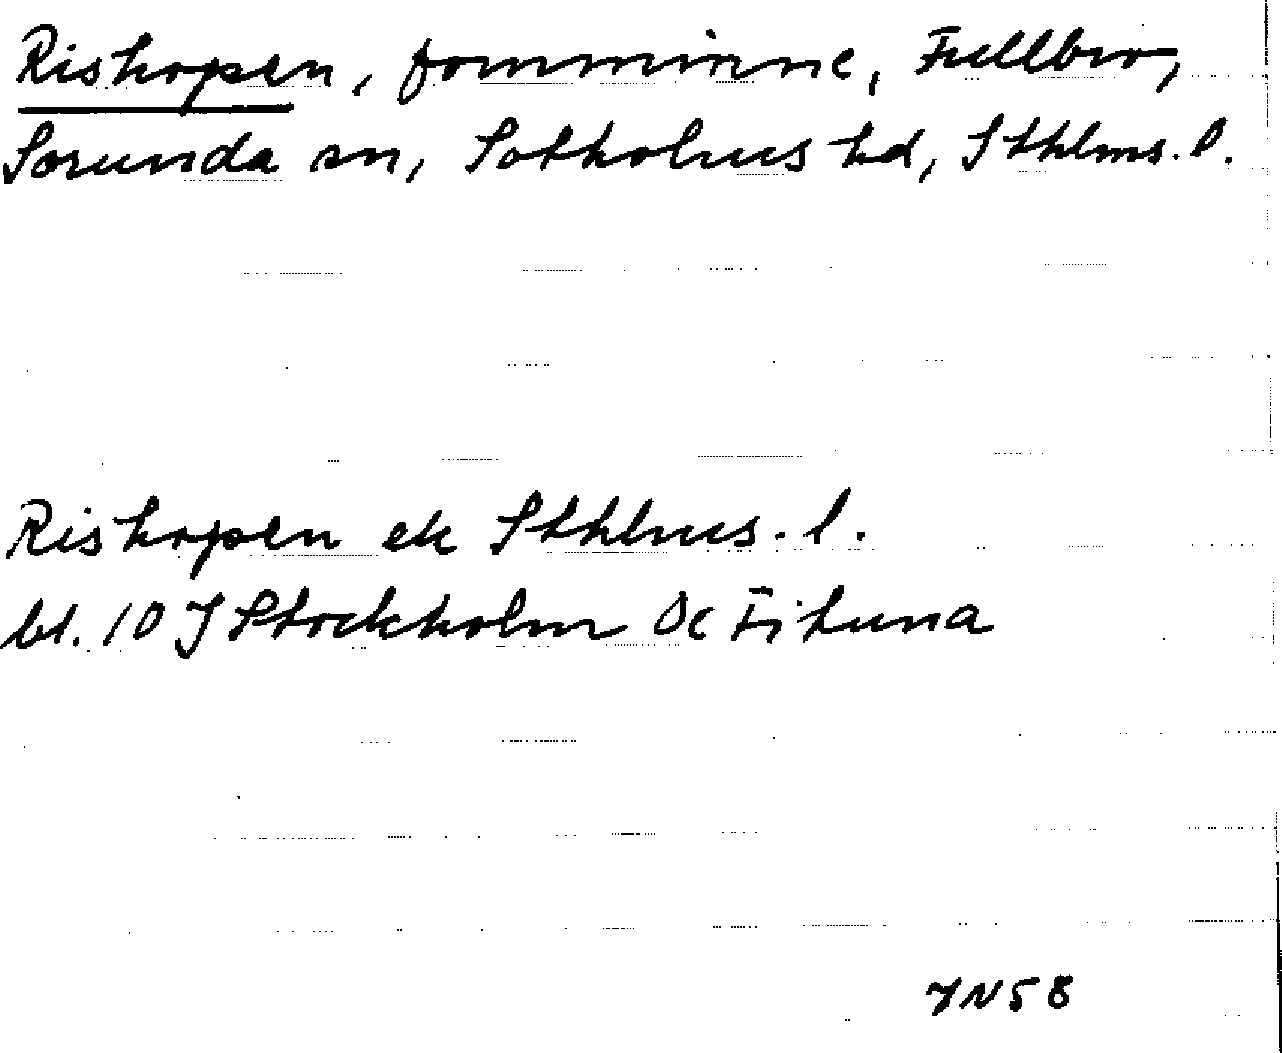 Rishopen, fornminne, Fullbro,
Sorunda sn, Sotholms hd, Sthlms. l.
Rishopen ek Sthlms. l.
bl. 10 I Stockholm Sc Fituna
JN58